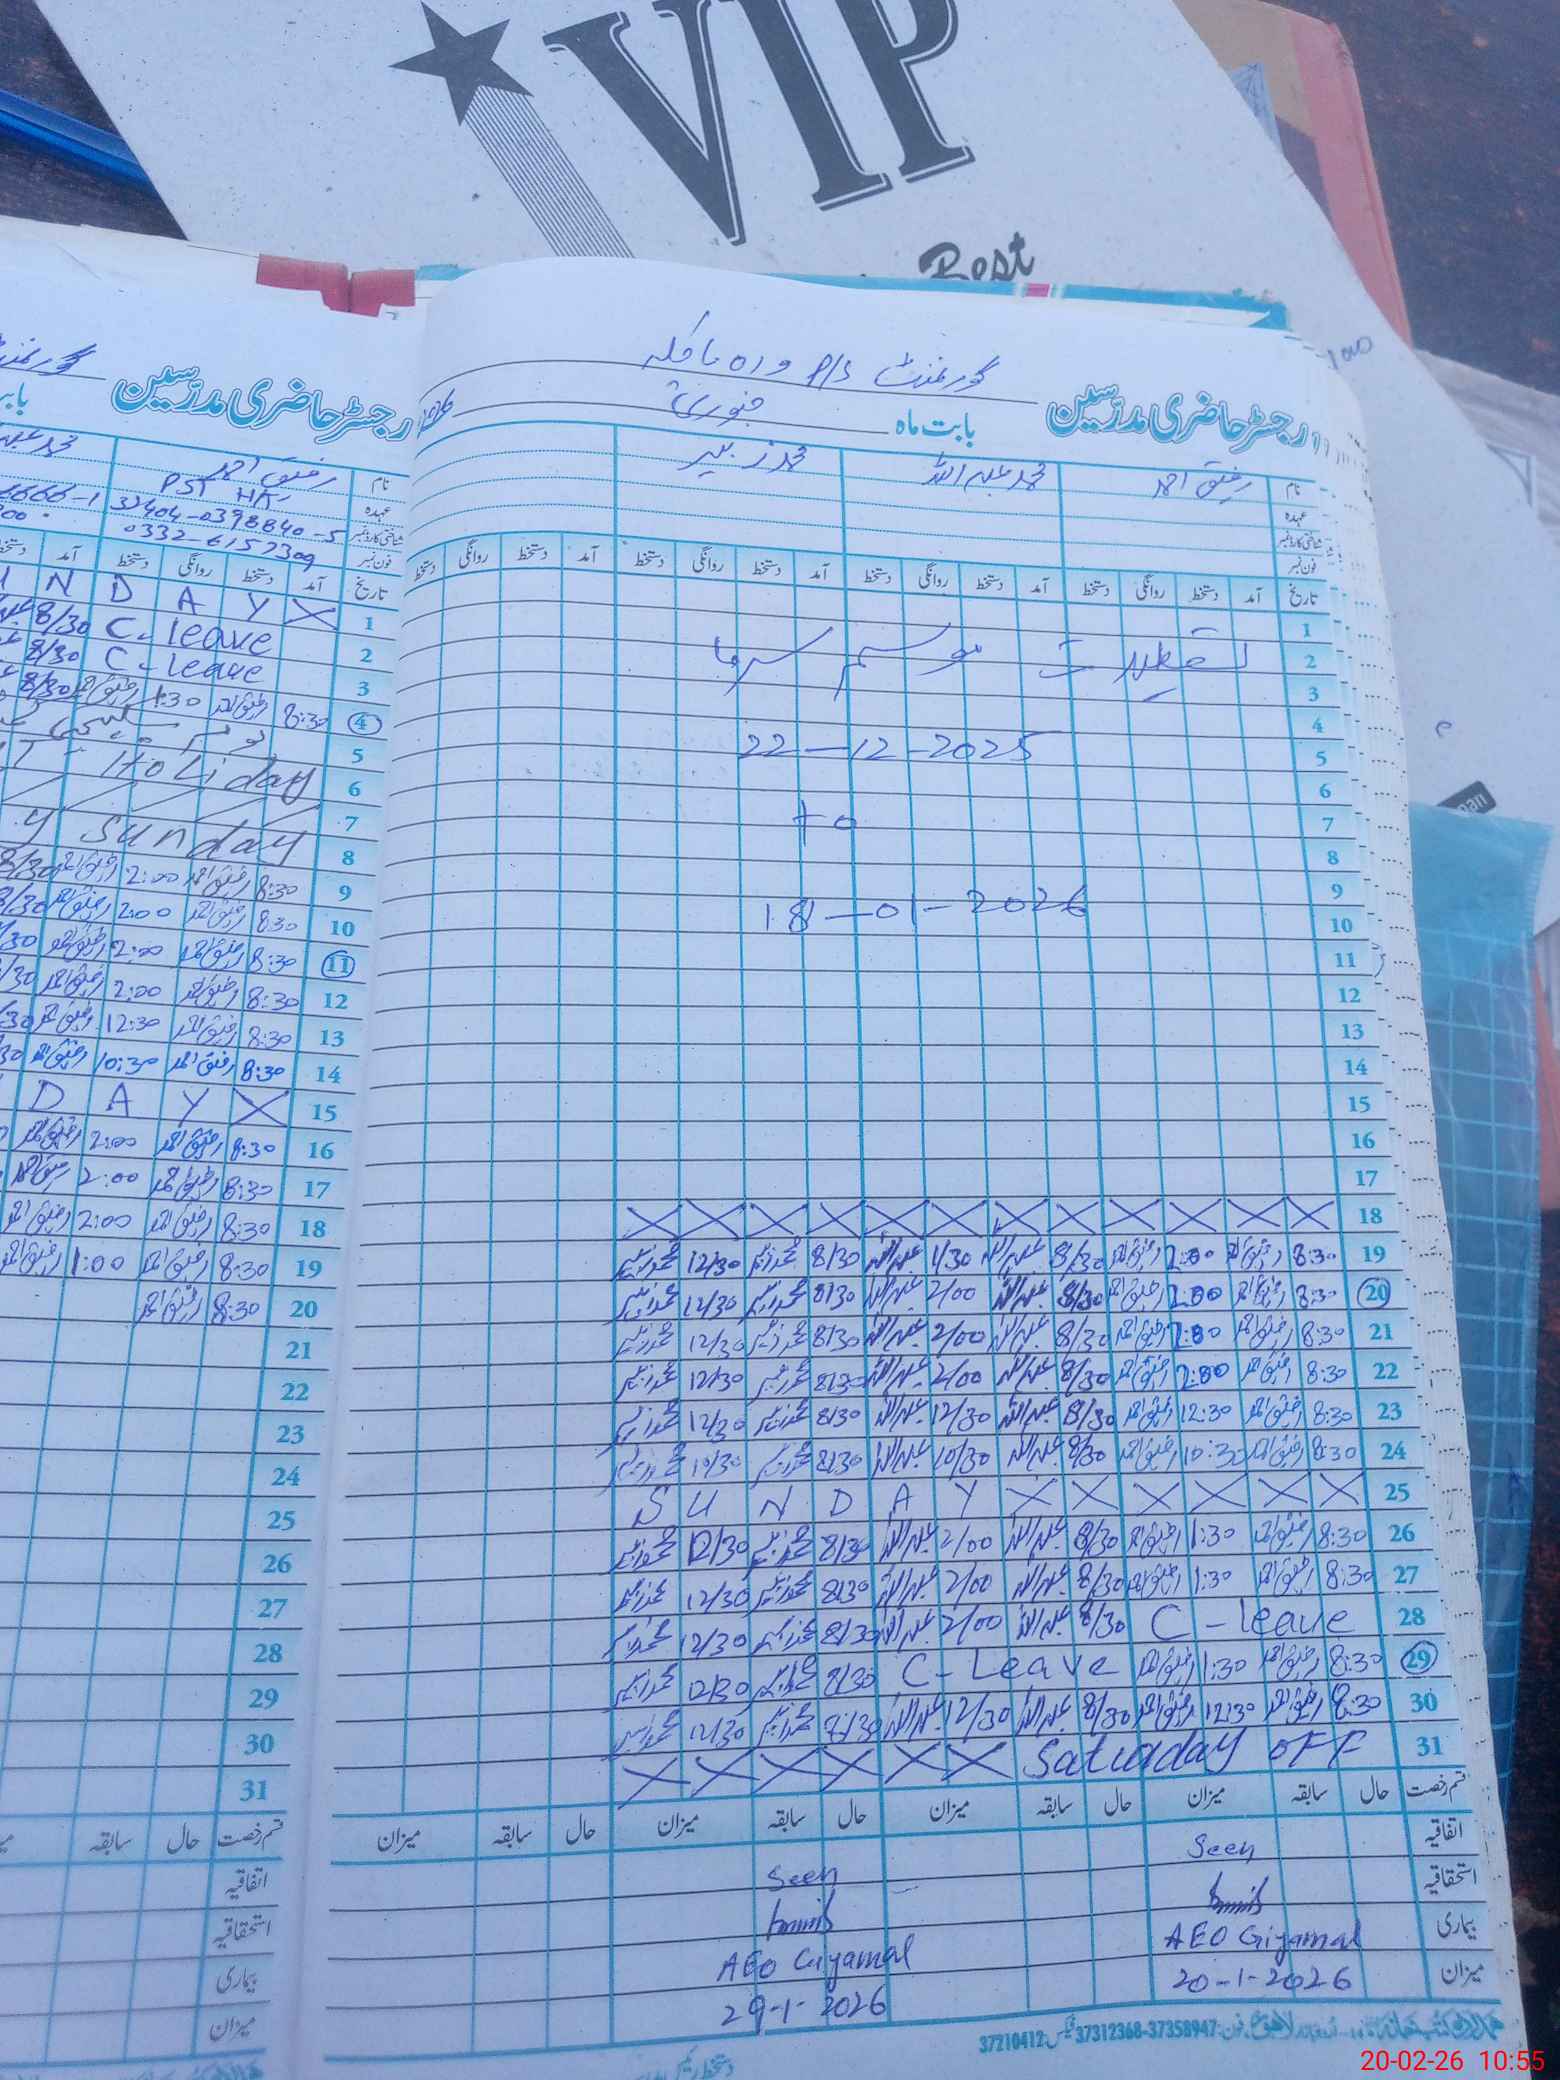 VIP
Best
گورنمنٹ P/S
رجسٹر حاضری مدرّسین بابت ماہ جنوری
نام رفیق احمد محمد عبداللہ محمد زبیر
عہدہ
شناختی کارڈ نمبر
فون نمبر
تاریخ آمد دستخط روانگی دستخط آمد دستخط روانگی دستخط آمد دستخط روانگی دستخط آمد دستخط روانگی دستخط
1
2 تعطیلات موسم سرما
3
4
5 22-12-2025
6
7 to
8
9
10 18-01-2026
11
12
13
14
15
16
17
18 X X X X X X X X X X X X
19 8:30 رفیق احمد 2:00 رفیق احمد 8/30 عبداللہ 1/30 عبداللہ 8/30 محمد زبیر 12/30 محمد زبیر
20 8:30 رفیق احمد 2:00 رفیق احمد 8/30 عبداللہ 2/00 عبداللہ 8/30 محمد زبیر 12/30 محمد زبیر
21 8:30 رفیق احمد 2:00 رفیق احمد 8/30 عبداللہ 2/00 عبداللہ 8/30 محمد زبیر 12/30 محمد زبیر
22 8:30 رفیق احمد 2:00 رفیق احمد 8/30 عبداللہ 2/00 عبداللہ 8/30 محمد زبیر 12/30 محمد زبیر
23 8:30 رفیق احمد 12:30 رفیق احمد 8/30 عبداللہ 12/30 عبداللہ 8/30 محمد زبیر 12/30 محمد زبیر
24 8:30 رفیق احمد 10:30 رفیق احمد 8/30 عبداللہ 10/30 عبداللہ 8/30 محمد زبیر 10/30 محمد زبیر
25 S U N D A Y X X X X X X
26 8:30 رفیق احمد 1:30 رفیق احمد 8/30 عبداللہ 2/00 عبداللہ 8/30 محمد زبیر 12/30 محمد زبیر
27 8:30 رفیق احمد 1:30 رفیق احمد 8/30 عبداللہ 2/00 عبداللہ 8/30 محمد زبیر 12/30 محمد زبیر
28 C-leave 8/30 عبداللہ 2/00 عبداللہ 8/30 محمد زبیر 12/30 محمد زبیر
29 8:30 رفیق احمد 1:30 رفیق احمد C-Leave 8/30 محمد زبیر 12/30 محمد زبیر
30 8:30 رفیق احمد 12:30 رفیق احمد 8/30 عبداللہ 12/30 عبداللہ 8/30 محمد زبیر 12/30 محمد زبیر
31 X X X X X X Saturaday OFF
قسم رخصت حال سابقہ میزان حال سابقہ میزان حال سابقہ میزان حال سابقہ میزان
اتفاقیہ Seen Seen
استحقاقیہ
بیماری AEO Giyamal AEO Giyamal
میزان 20-1-2026 29-1-2026
37358947-37312368 فیکس: 37210412
رجسٹر حاضری مدرّسین
نام رفیق احمد
عہدہ PST HA
شناختی کارڈ نمبر 32404-0398840-5
فون نمبر 0332-6157309
تاریخ آمد دستخط روانگی دستخط آمد
1 N D A Y X
2 C-leave 8/30
3 C-leave 8/30
4 8:30 رفیق احمد 1:30 رفیق احمد 8/30
5
6 Holiday
7
8 Sunday
9 8:30 رفیق احمد 2:00 رفیق احمد 8/30
10 8:30 رفیق احمد 2:00 رفیق احمد 8/30
11 8:30 رفیق احمد 2:00 رفیق احمد
12 8:30 رفیق احمد 2:00 رفیق احمد
13 8:30 رفیق احمد 12:30 رفیق احمد
14 8:30 رفیق احمد 10:30 رفیق احمد
15 D A Y X
16 8:30 رفیق احمد 2:00 رفیق احمد
17 8:30 رفیق احمد 2:00 رفیق احمد
18 8:30 رفیق احمد 2:00 رفیق احمد
19 8:30 رفیق احمد 1:00 رفیق احمد
20 8:30 رفیق احمد
21
22
23
24
25
26
27
28
29
30
31
قسم رخصت حال سابقہ
اتفاقیہ
استحقاقیہ
بیماری
میزان
20-02-26 10:55